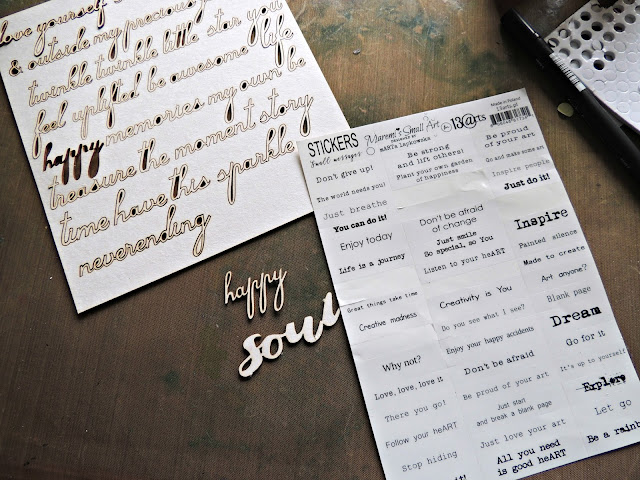 love yourself
& outside my precious
twinkle twinkle little star you
feel uplifted be awesome life
happy memories my own be
treasure the moment story
time have this sparkle
neverending
happy
soul
STICKERS
Small messages
Maremi's Small Art
designed by
mARTa Lapkowska
13@rts
Made in Poland
13arts.pl
Don't give up!
The world needs you!
Just breathe
You can do it!
Enjoy today
Life is a journey
Great things take time
Creative madness
Why not?
Love, love, love it
There you go!
Follow your heART
Stop hiding
Be strong
and lift others!
Plant your own garden
of happiness
Don't be afraid
of change
Just smile
So special, so You
Listen to your heART
Creativity is You
Do you see what I see?
Enjoy your happy accidents
Don't be afraid
Be proud of your art
Just start
and break a blank page
Just love your art
All you need
is good heART
Be proud
of your art
Go and make some art
Inspire people
Just do it!
Inspire
Painted silence
Made to create
Art anyone?
Blank page
Dream
Go for it
It's up to yourself
Explore
Let go
Be a rainb